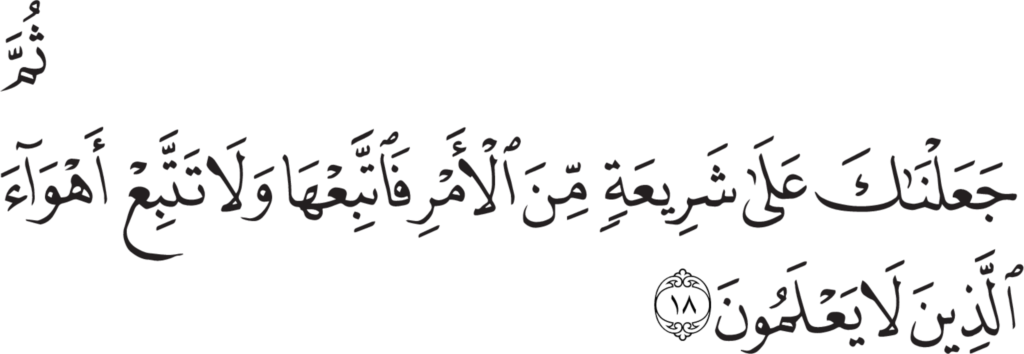 ثُمَّ
جَعَلْنَٰكَ عَلَىٰ شَرِيعَةٍ مِّنَ ٱلْأَمْرِ فَٱتَّبِعْهَا وَلَا تَتَّبِعْ أَهْوَآءَ
ٱلَّذِينَ لَا يَعْلَمُونَ ١٨